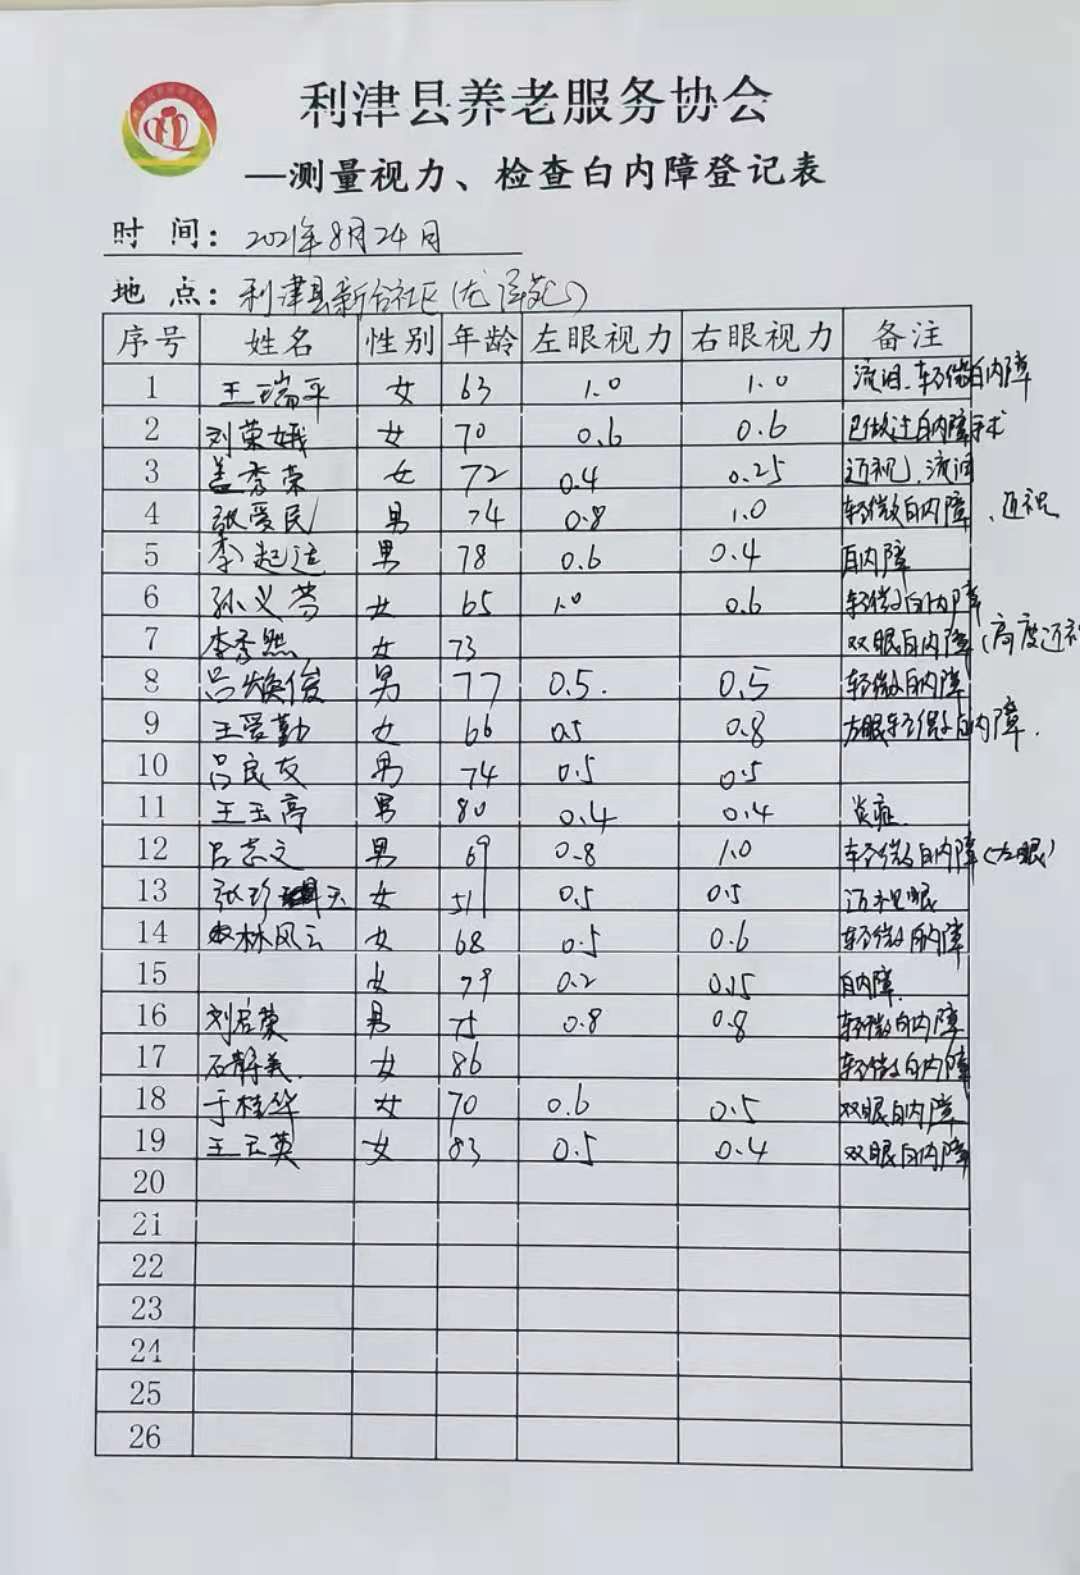 利津县养老服务协会
—测量视力、检查白内障登记表
时 间：2021年8月24日
地 点：利津县新合社区(龙泽苑)
序号 姓名 性别 年龄 左眼视力 右眼视力 备注
1 王瑞平 女 63 1.0 1.0 流泪、轻微白内障
2 刘荣娥 女 70 0.6 0.6 已做过白内障手术
3 盖秀荣 女 72 0.4 0.25 近视、流泪
4 张爱民 男 74 0.8 1.0 轻微白内障、近视
5 李起运 男 78 0.6 0.4 白内障
6 孙义芬 女 65 1.0 0.6 轻微白内障
7 李秀 女 73 双眼白内障(高度近视
8 吕焕俊 男 77 0.5. 0.5 轻微白内障
9 王爱勤 女 66 0.5 0.8 左眼轻微白内障.
10 吕良友 男 74 0.5 0.5
11 王玉亭 男 80 0.4 0.4 炎症.
12 吕志文 男 69 0.8 1.0 轻微白内障(左眼)
13 张珍 女 51 0.5 0.5 近视眼
14 林风云 女 68 0.5 0.6 轻微白内障
15 女 79 0.2 0.15 白内障.
16 刘启荣 男 75 0.8 0.8 轻微白内障
17 石静美. 女 86 轻微白内障
18 于桂华 女 70 0.6 0.5 双眼白内障
19 王云英 女 83 0.5 0.4 双眼白内障
20
21
22
23
24
25
26